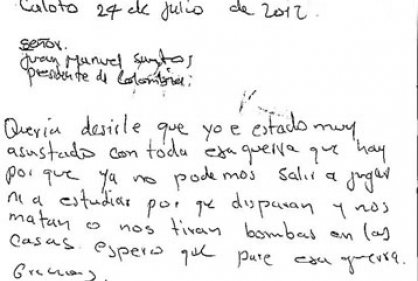 Caloto 24 de Julio de 2012.
señor.
Juan Manuel Santos
presidente de Colombia:
Queria desirle que yo e estado muy
asustado con toda esa guerra que hay
por que ya no podemos salir a jugar
ni a estudiar por qe disparan y nos
matan o nos tiran bombas en las
casas. espero que pare esa guerra.
Gracias